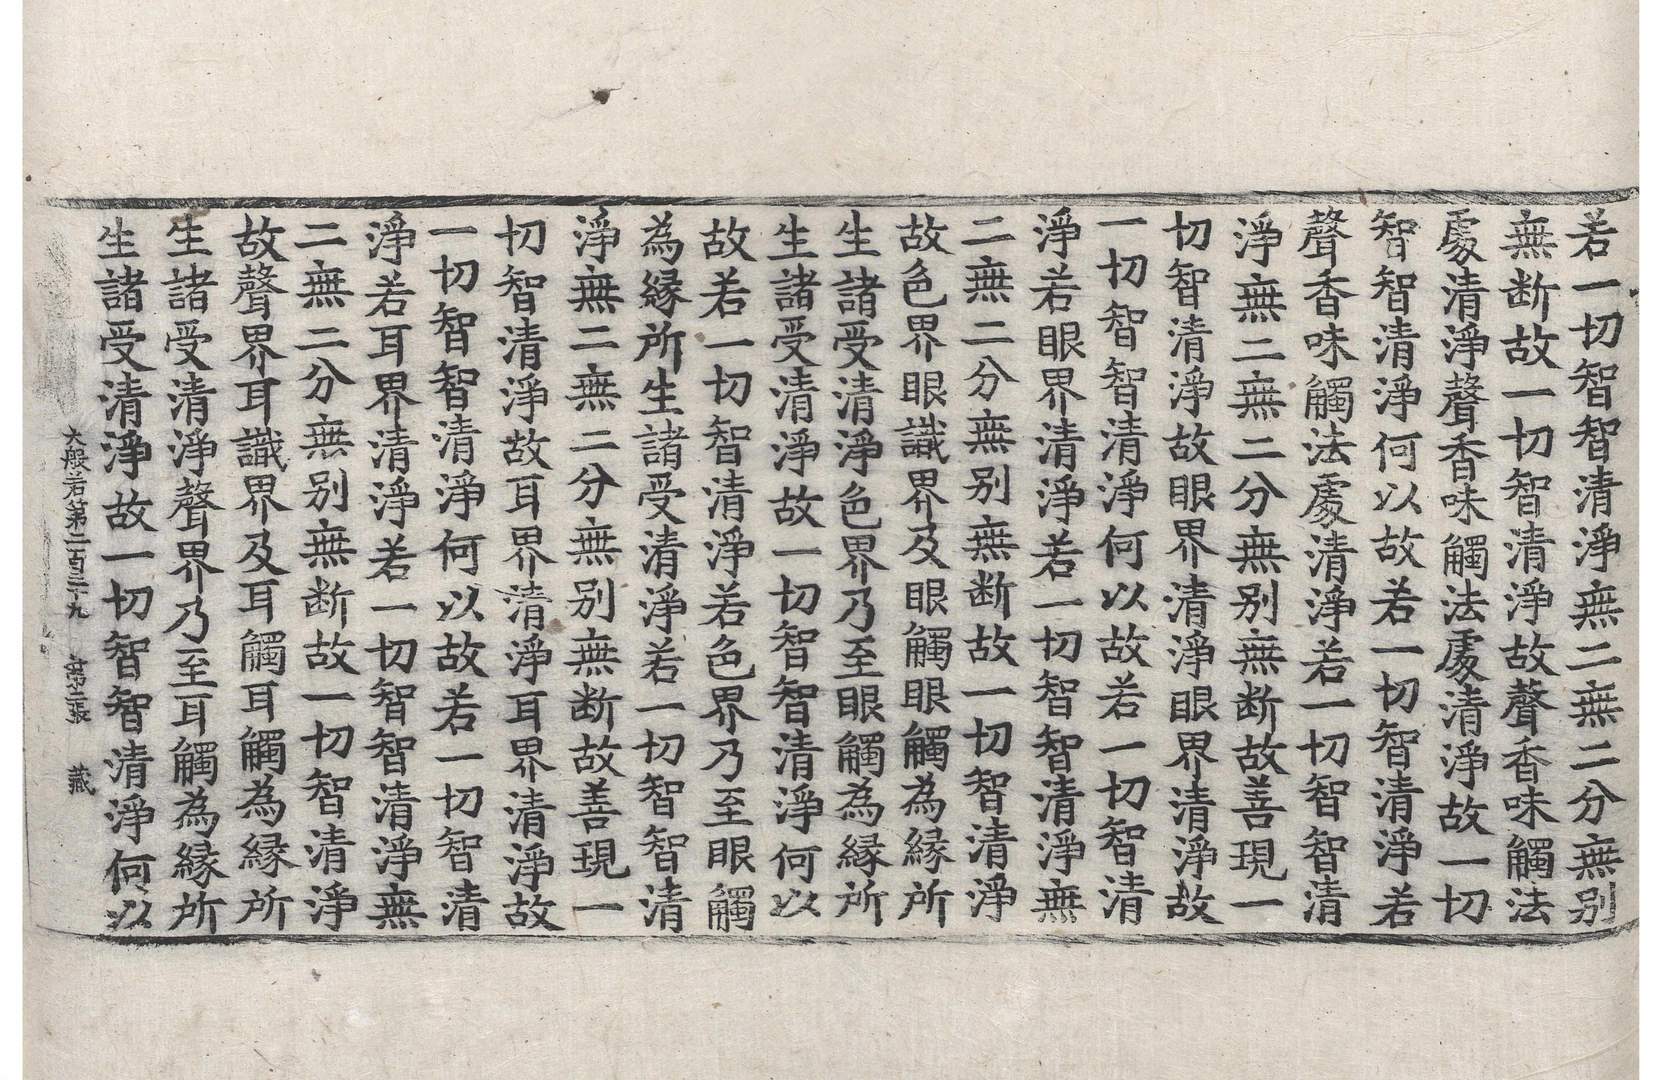 若一切智智清淨無二無二分無別
無断故一切智清淨故聲香味觸法
處清淨聲香味觸法處清淨故一切
智智清淨何以故若一切智清淨若
聲香味觸法處清淨若一切智智清
淨無二無二分無別無断故善現一
切智清淨故眼界清淨眼界清淨故
一切智智清淨何以故若一切智清
淨若眼界清淨若一切智智清淨無
二無二分無別無断故一切智清淨
故色界眼識界及眼觸眼觸為縁所
生諸受清淨色界乃至眼觸為縁所
生諸受清淨故一切智智清淨何以
故若一切智清淨若色界乃至眼觸
為縁所生諸受清淨若一切智智清
淨無二無二分無別無断故善現一
切智清淨故耳界清淨耳界清淨故
一切智智清淨何以故若一切智清
淨若耳界清淨若一切智智清淨無
二無二分無別無断故一切智清淨
故聲界耳識界及耳觸耳觸為縁所
生諸受清淨聲界乃至耳觸為縁所
生諸受清淨故一切智智清淨何以
大般若第二百三十九 第二張 藏